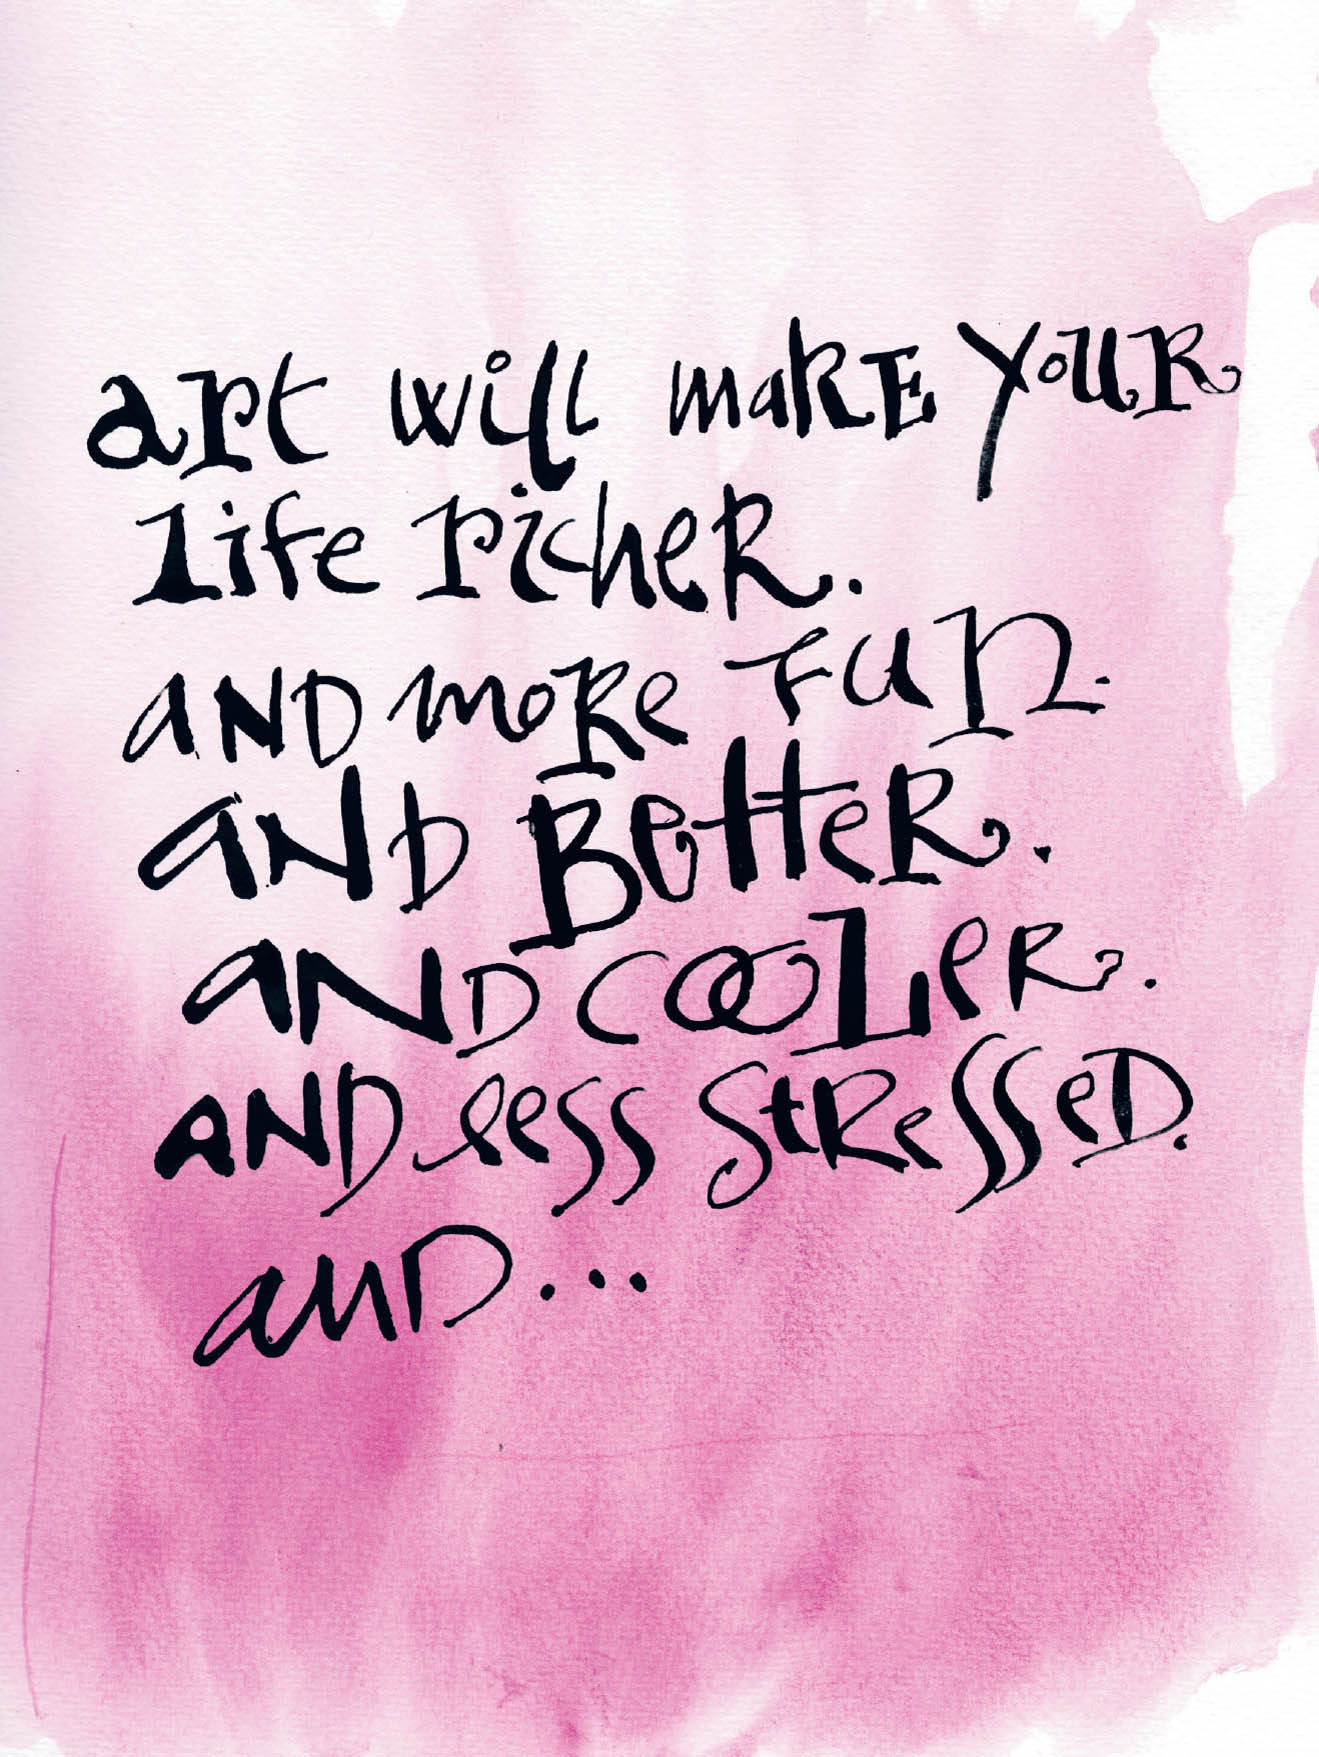 art will make your
life richer.
and more fun.
and Better.
and cooler.
and less stressed.
and...